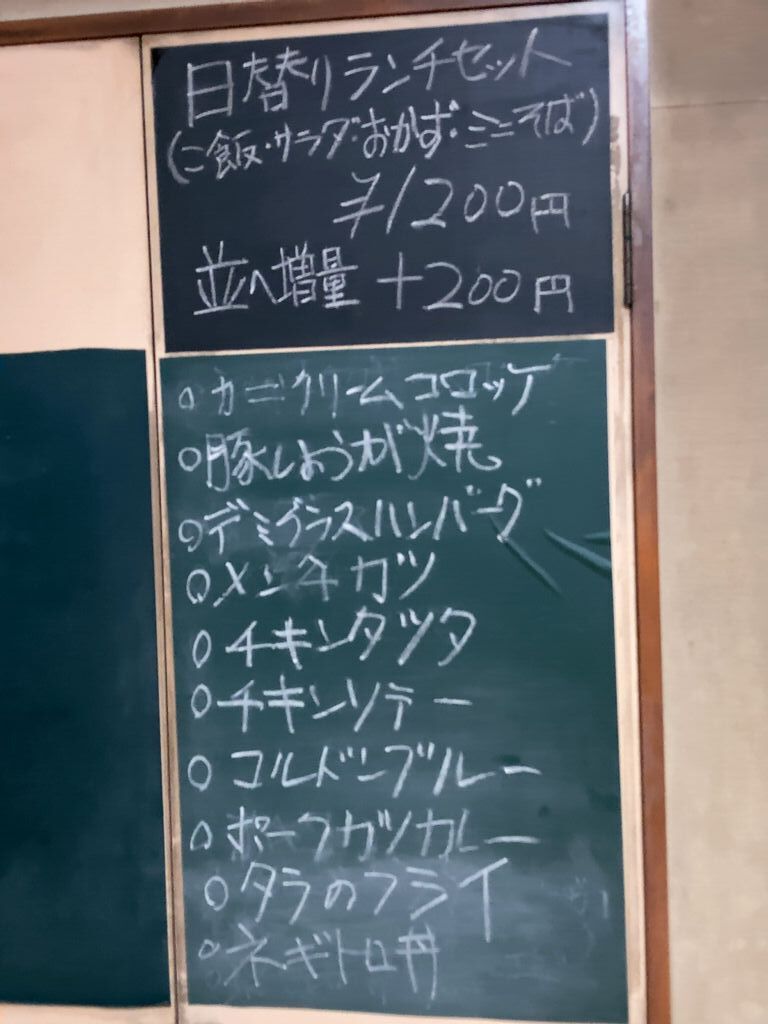 日替りランチセット
(ご飯・サラダ・おかず・ミニそば)
¥1200円
並へ増量 +200円
○カニクリームコロッケ
○豚しょうが焼
○デミグラスハンバーグ
○メンチカツ
○チキンタツタ
○チキンソテー
○コルドンブルー
○ポークカツカレー
○タラのフライ
○ネギトロ丼